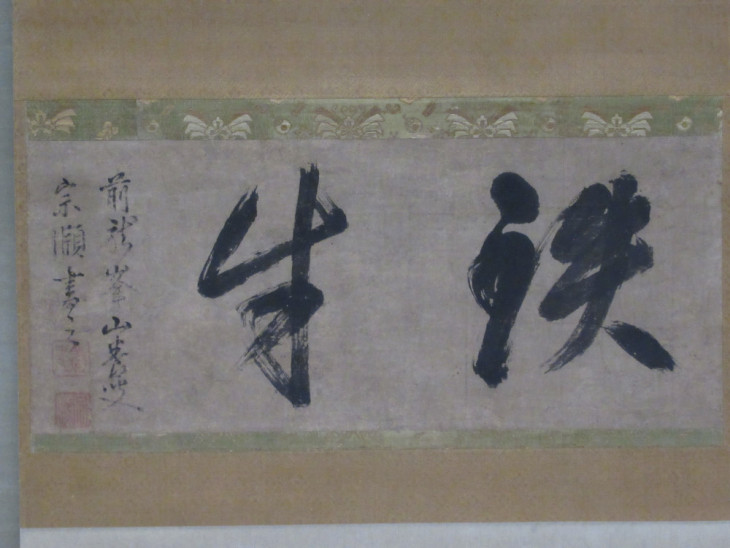 鉄牛
前龍峯山叟
宗書之